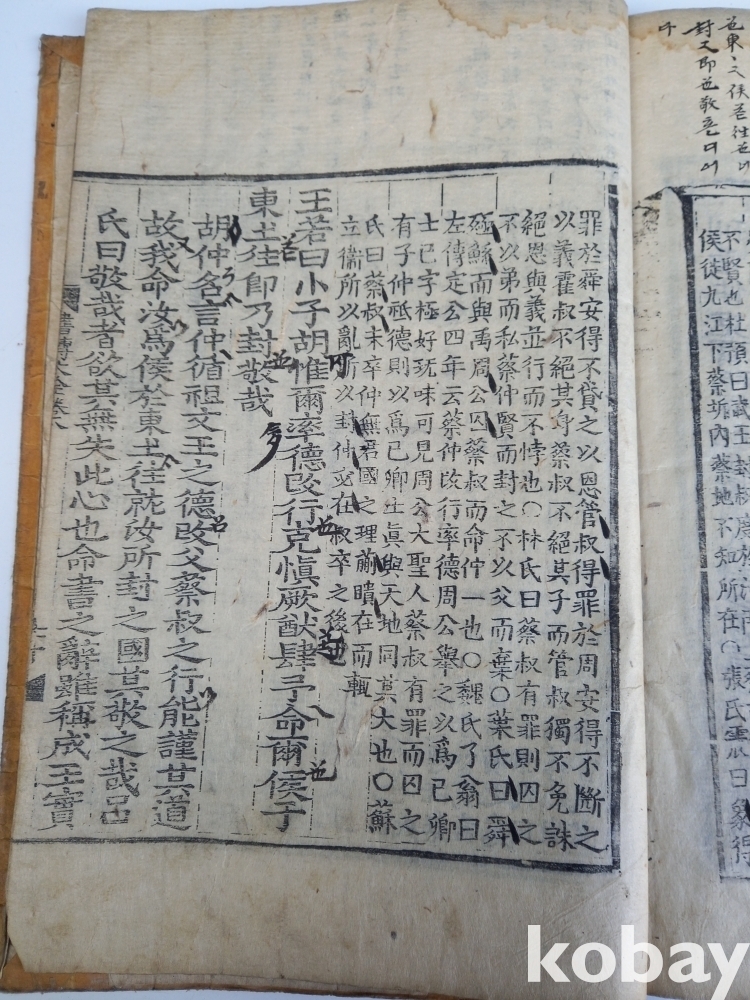 不賢也杜預曰武王封叔度於汝南上蔡
侯徒九江下蔡圻內蔡地不知所在〇張氏震曰象得
罪於舜安得不貸之以恩管叔得罪於周安得不斷之
以義霍叔不絕其身蔡叔不絕其子而管叔獨不免誅
絕恩與義並行而不悖也〇林氏曰蔡叔有罪則囚之
不以弟而私蔡仲賢而封之不以父而棄〇葉氏曰舜
殛鯀而與禹周公囚蔡叔而命仲一也〇魏氏了翁曰
左傳定公四年云蔡仲改行率德周公舉之以爲己卿
士已字極好玩味可見周公大聖人蔡叔有罪而囚之
有子仲祗德則以爲己卿士眞與天地同其大也〇蘇
氏曰蔡叔未卒仲無君國之理蒯聵在而輒
立衞所以亂所以封仲必在叔卒之後也
王若曰小子胡惟爾率德改行克愼厥猷肆予命爾侯于
東土往卽乃封敬哉
胡仲名言仲循祖文王之德改父蔡叔之行能謹其道
故我命汝爲侯於東土往就汝所封之國其敬之哉呂
氏曰敬哉者欲其無失此心也命書之辭雖稱成王實
書傳大全卷八
kobay